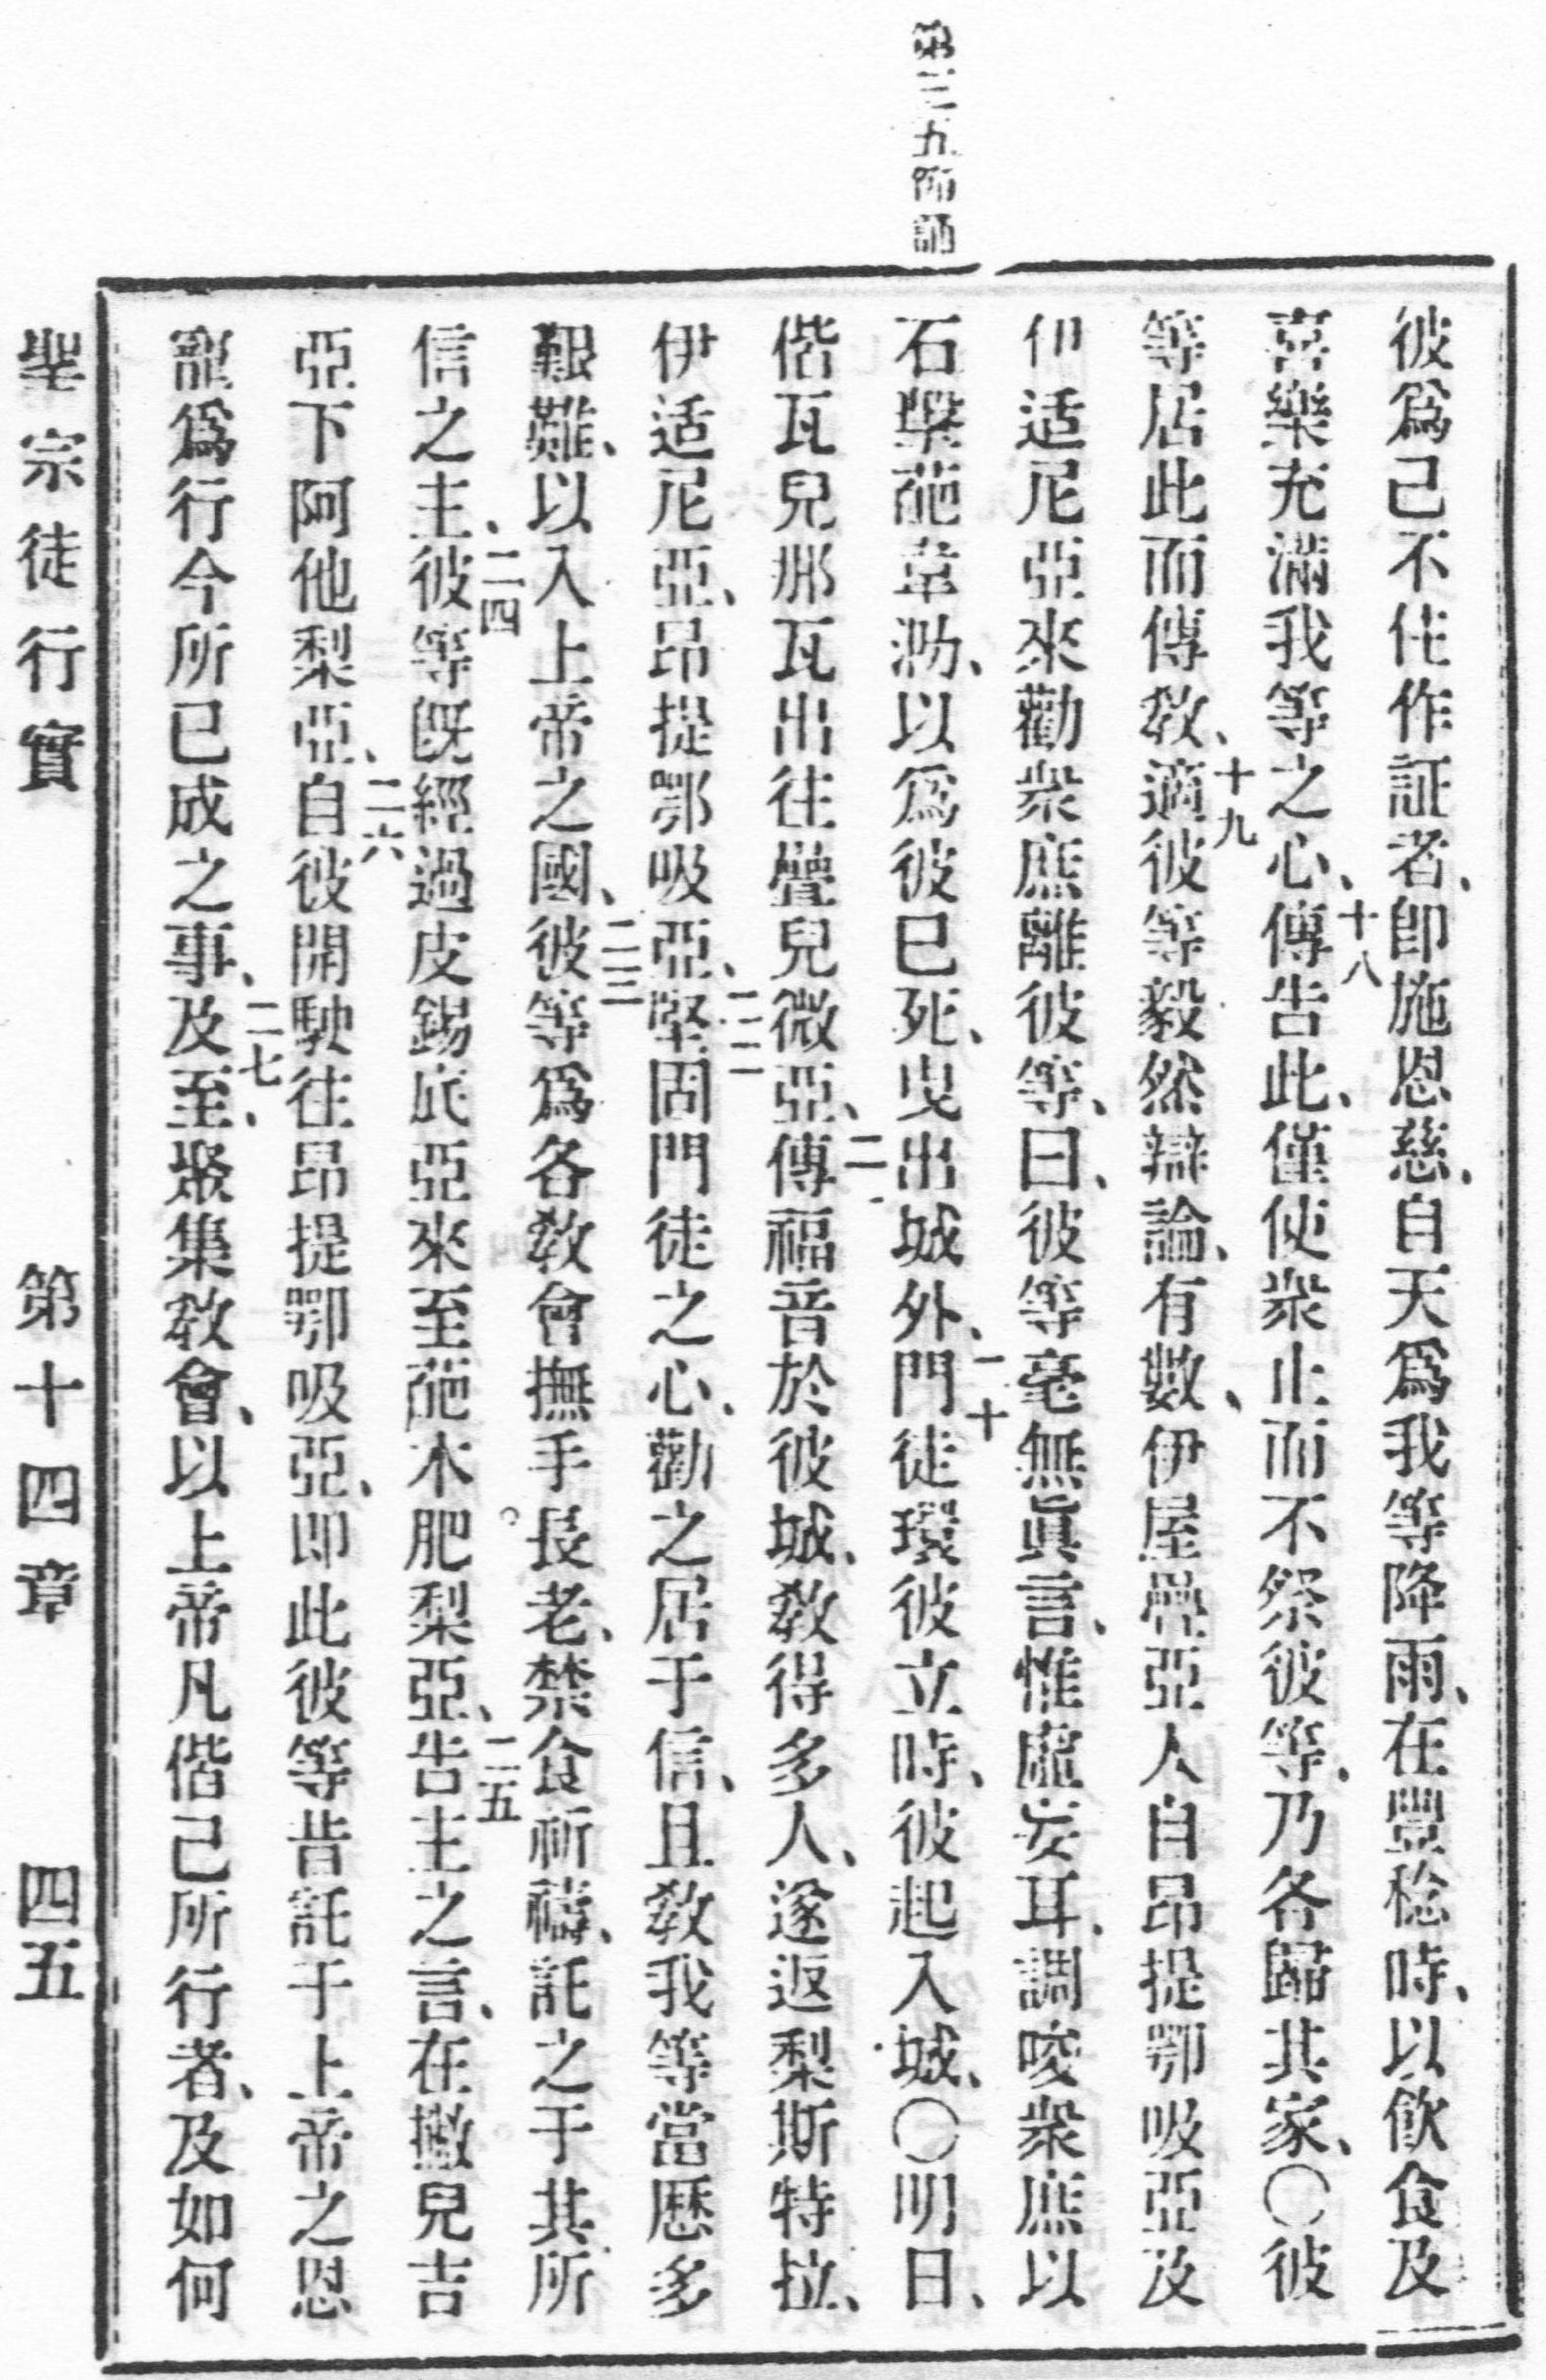 第三五節誦
彼爲己不住作証者、卽施恩慈、自天爲我等降雨、在豐稔時、以飮食及
喜樂充滿我等之心、十八傳告此、僅使衆止而不祭彼等、乃各歸其家、〇彼
等居此而傳敎、十九適彼等毅然辯論、有數、伊屋疊亞人自昂提鄂吸亞及
伊适尼亞來勸衆庶離彼等、曰、彼等毫無眞言、惟虛妄耳、調唆衆庶以
石擊葩韋泐、以爲彼已死、曳出城外、二十門徒環彼立時、彼起入城、〇明日、
偕瓦兒那瓦出往疊兒微亞、二一傳福音於彼城、敎得多人、遂返梨斯特拉、
伊适尼亞、昂提鄂吸亞、二二堅固門徒之心、勸之居于信、且敎我等當歷多
艱難、以入上帝之國、二三彼等爲各敎會撫手。長老、禁食祈禱、託之于其所
信之主、二四彼等旣經過皮錫底亞來至葩木肥梨亞、二五告主之言、在撒兒吉
亞下阿他梨亞、二六自彼開駛往昂提鄂吸亞、卽此彼等昔託于上帝之恩
寵爲行今所已成之事、二七及至、聚集敎會、以上帝凡偕己所行者、及如何
聖宗徒行實 第十四章 四五